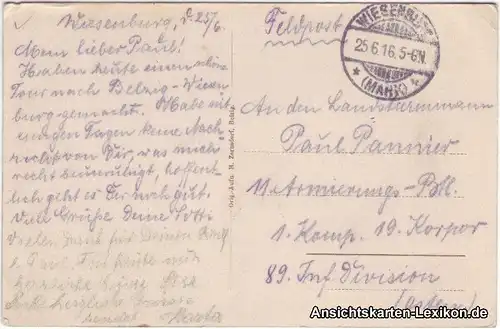 Wiesenburg, d. 25/6.
Mein lieber Paul!
Haben heute eine
Tour nach Belzig-Wiesen
burg gemacht. Habe seit
einigen Tagen keine Nach
richt von Dir, was mich
recht beunruhigt, hoffent
lich geht es Dir noch gut.
Viele Grüße Deine Lotti
Vielen Dank für Deinen
l. Paul.
herzliche Grüße
sendet
Orig.-Aufn. H. Zernsdorf, Belzig
Feldpost
WIESENBURG
25.6.16.5-6N.
* (MARK) *
An den Landsturmmann
Paul Pannier
Armierungs-Batl.
1. Komp. 19. Korpor
89. Inf Division
(Osten)
Ansichtskarten-Lexikon.de